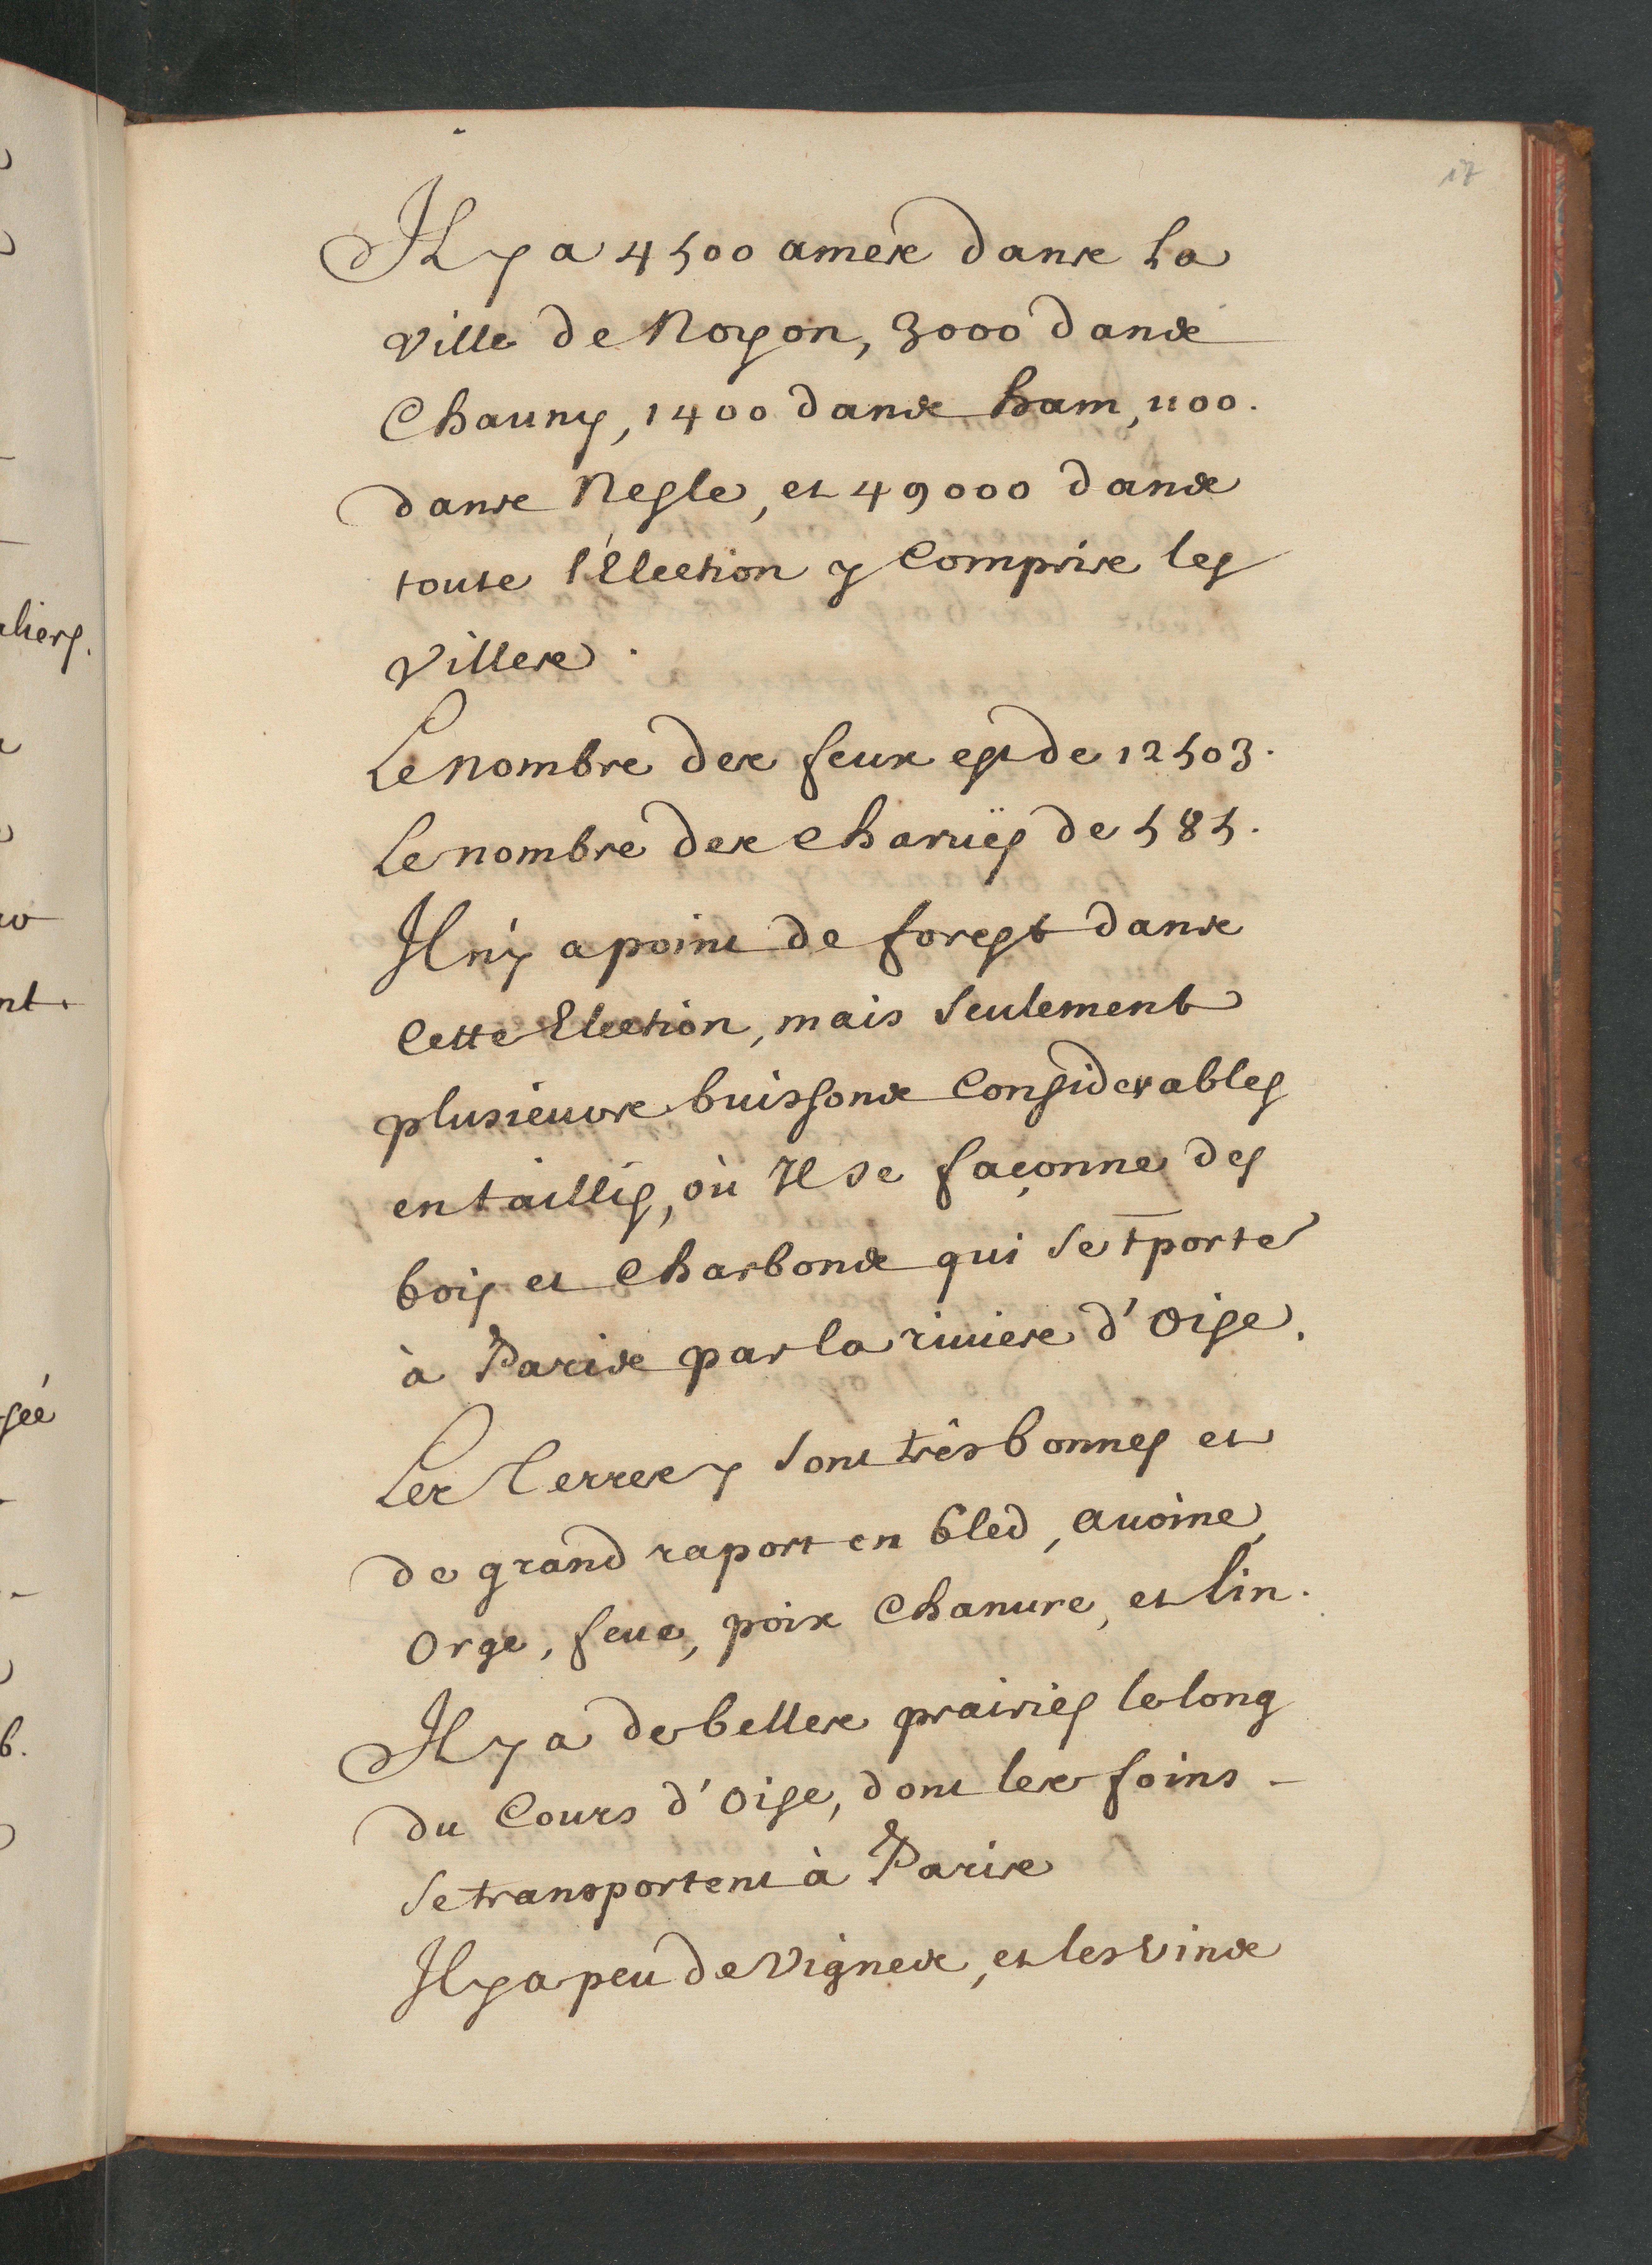 17
Il y a 4500 ames dans la
ville de Noyon, 3000 dans
Chauny, 1400 dans ham, 1100.
dans Nesle, et 49000 dans
toute l'Election y Compris les
Villes.
Le nombre des feux est de 12503.
Le nombre des charuës de 585.
Il n'y a point de forest dans
Cette Election, mais Seulement
plusieurs buissons Considerables
en taillis, où Il se façonne des
bois et Charbons qui se tporte
à Paris par la riuiere d'Oise.
Les Terres y Sont très bonnes et
de grand raport en bled, auoine,
Orge, feue, pois Chanure, et lin.
Il y a de belles prairies le long
du Cours d'Oise, dont les foins -
Se transportent à Paris
Il y a peu de Vignes, et les Vins
liers.
nt.
sée